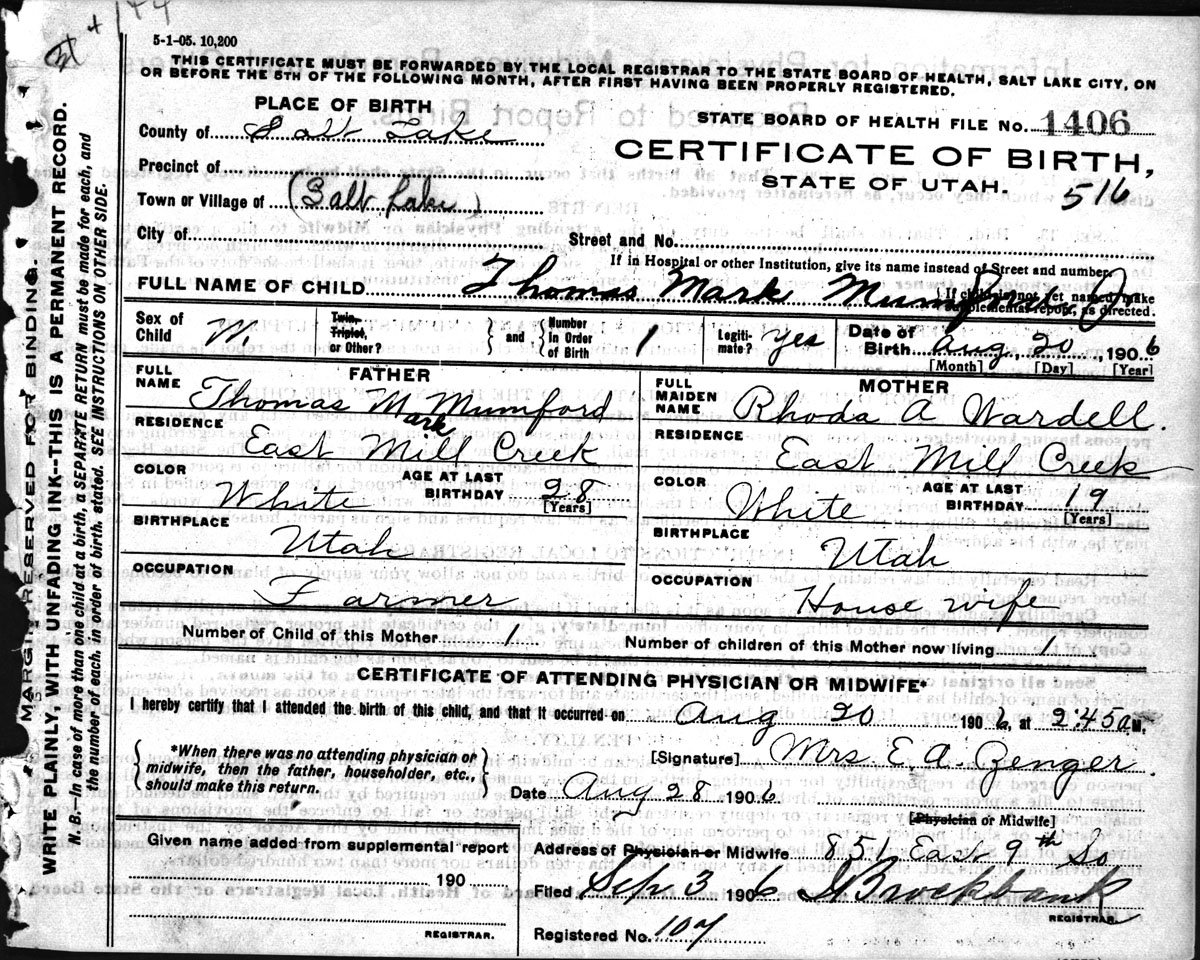 144
5-1-05. 10,200
THIS CERTIFICATE MUST BE FORWARDED BY THE LOCAL REGISTRAR TO THE STATE BOARD OF HEALTH, SALT LAKE CITY, ON
OR BEFORE THE 5TH OF THE FOLLOWING MONTH, AFTER FIRST HAVING BEEN PROPERLY REGISTERED.
PLACE OF BIRTH
STATE BOARD OF HEALTH FILE No. 1406
County of Salt Lake
CERTIFICATE OF BIRTH,
Precinct of
STATE OF UTAH.
516
Town or Village of (Salt Lake)
City of
Street and No.
If in Hospital or other Institution, give its name instead of Street and number.
FULL NAME OF CHILD Thomas Mark Mumford Jr
If child is not yet named, make
supplemental report, as directed.
Sex of Child M. Twin, Triplet, or Other? and Number in Order of Birth 1 Legiti-mate? Yes Date of Birth Aug, 20, 1906
[Month] [Day] [Year]
FATHER
MOTHER
FULL NAME Thomas Mark Mumford
FULL MAIDEN NAME Rhoda A Wardell.
RESIDENCE East Mill Creek
RESIDENCE East Mill Creek
COLOR White AGE AT LAST BIRTHDAY 28 [Years]
COLOR White AGE AT LAST BIRTHDAY 19 [Years]
BIRTHPLACE Utah
BIRTHPLACE Utah
OCCUPATION Farmer
OCCUPATION House wife
Number of Child of this Mother 1
Number of children of this Mother now living 1
CERTIFICATE OF ATTENDING PHYSICIAN OR MIDWIFE*
I hereby certify that I attended the birth of this child, and that it occurred on Aug 20 1906, at 2:45 a.M.
*When there was no attending physician or
midwife, then the father, householder, etc.,
should make this return.
[Signature] Mrs E. A. Zenger.
Date Aug 28 1906.
[Physician or Midwife]
Given name added from supplemental report
190
REGISTRAR.
Address of Physician or Midwife 851 East 9th So
Filed Sep 3 1906 Brockbank
REGISTRAR.
Registered No. 107
MARGIN RESERVED FOR BINDING.
WRITE PLAINLY, WITH UNFADING INK--THIS IS A PERMANENT RECORD.
N. B.—In case of more than one child at a birth, a SEPARATE RETURN must be made for each, and
the number of each, in order of birth stated. SEE INSTRUCTIONS ON OTHER SIDE.